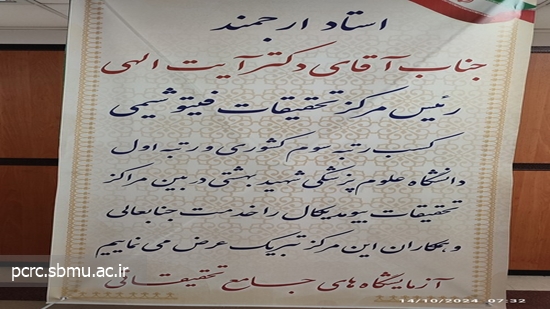 استاد ارجمند
جناب آقای دکتر آیت الهی
رئیس مرکز تحقیقات فیتوشیمی
کسب رتبه سوم کشوری و رتبه اول
دانشگاه علوم پزشکی شهید بهشتی در بین مراکز
تحقیقات بیومدیکال را خدمت جنابعالی
و همکاران این مرکز تبریک عرض می نماییم
آزمایشگاه های جامع تحقیقاتی
pcrc.sbmu.ac.ir
14/10/2024 07:32